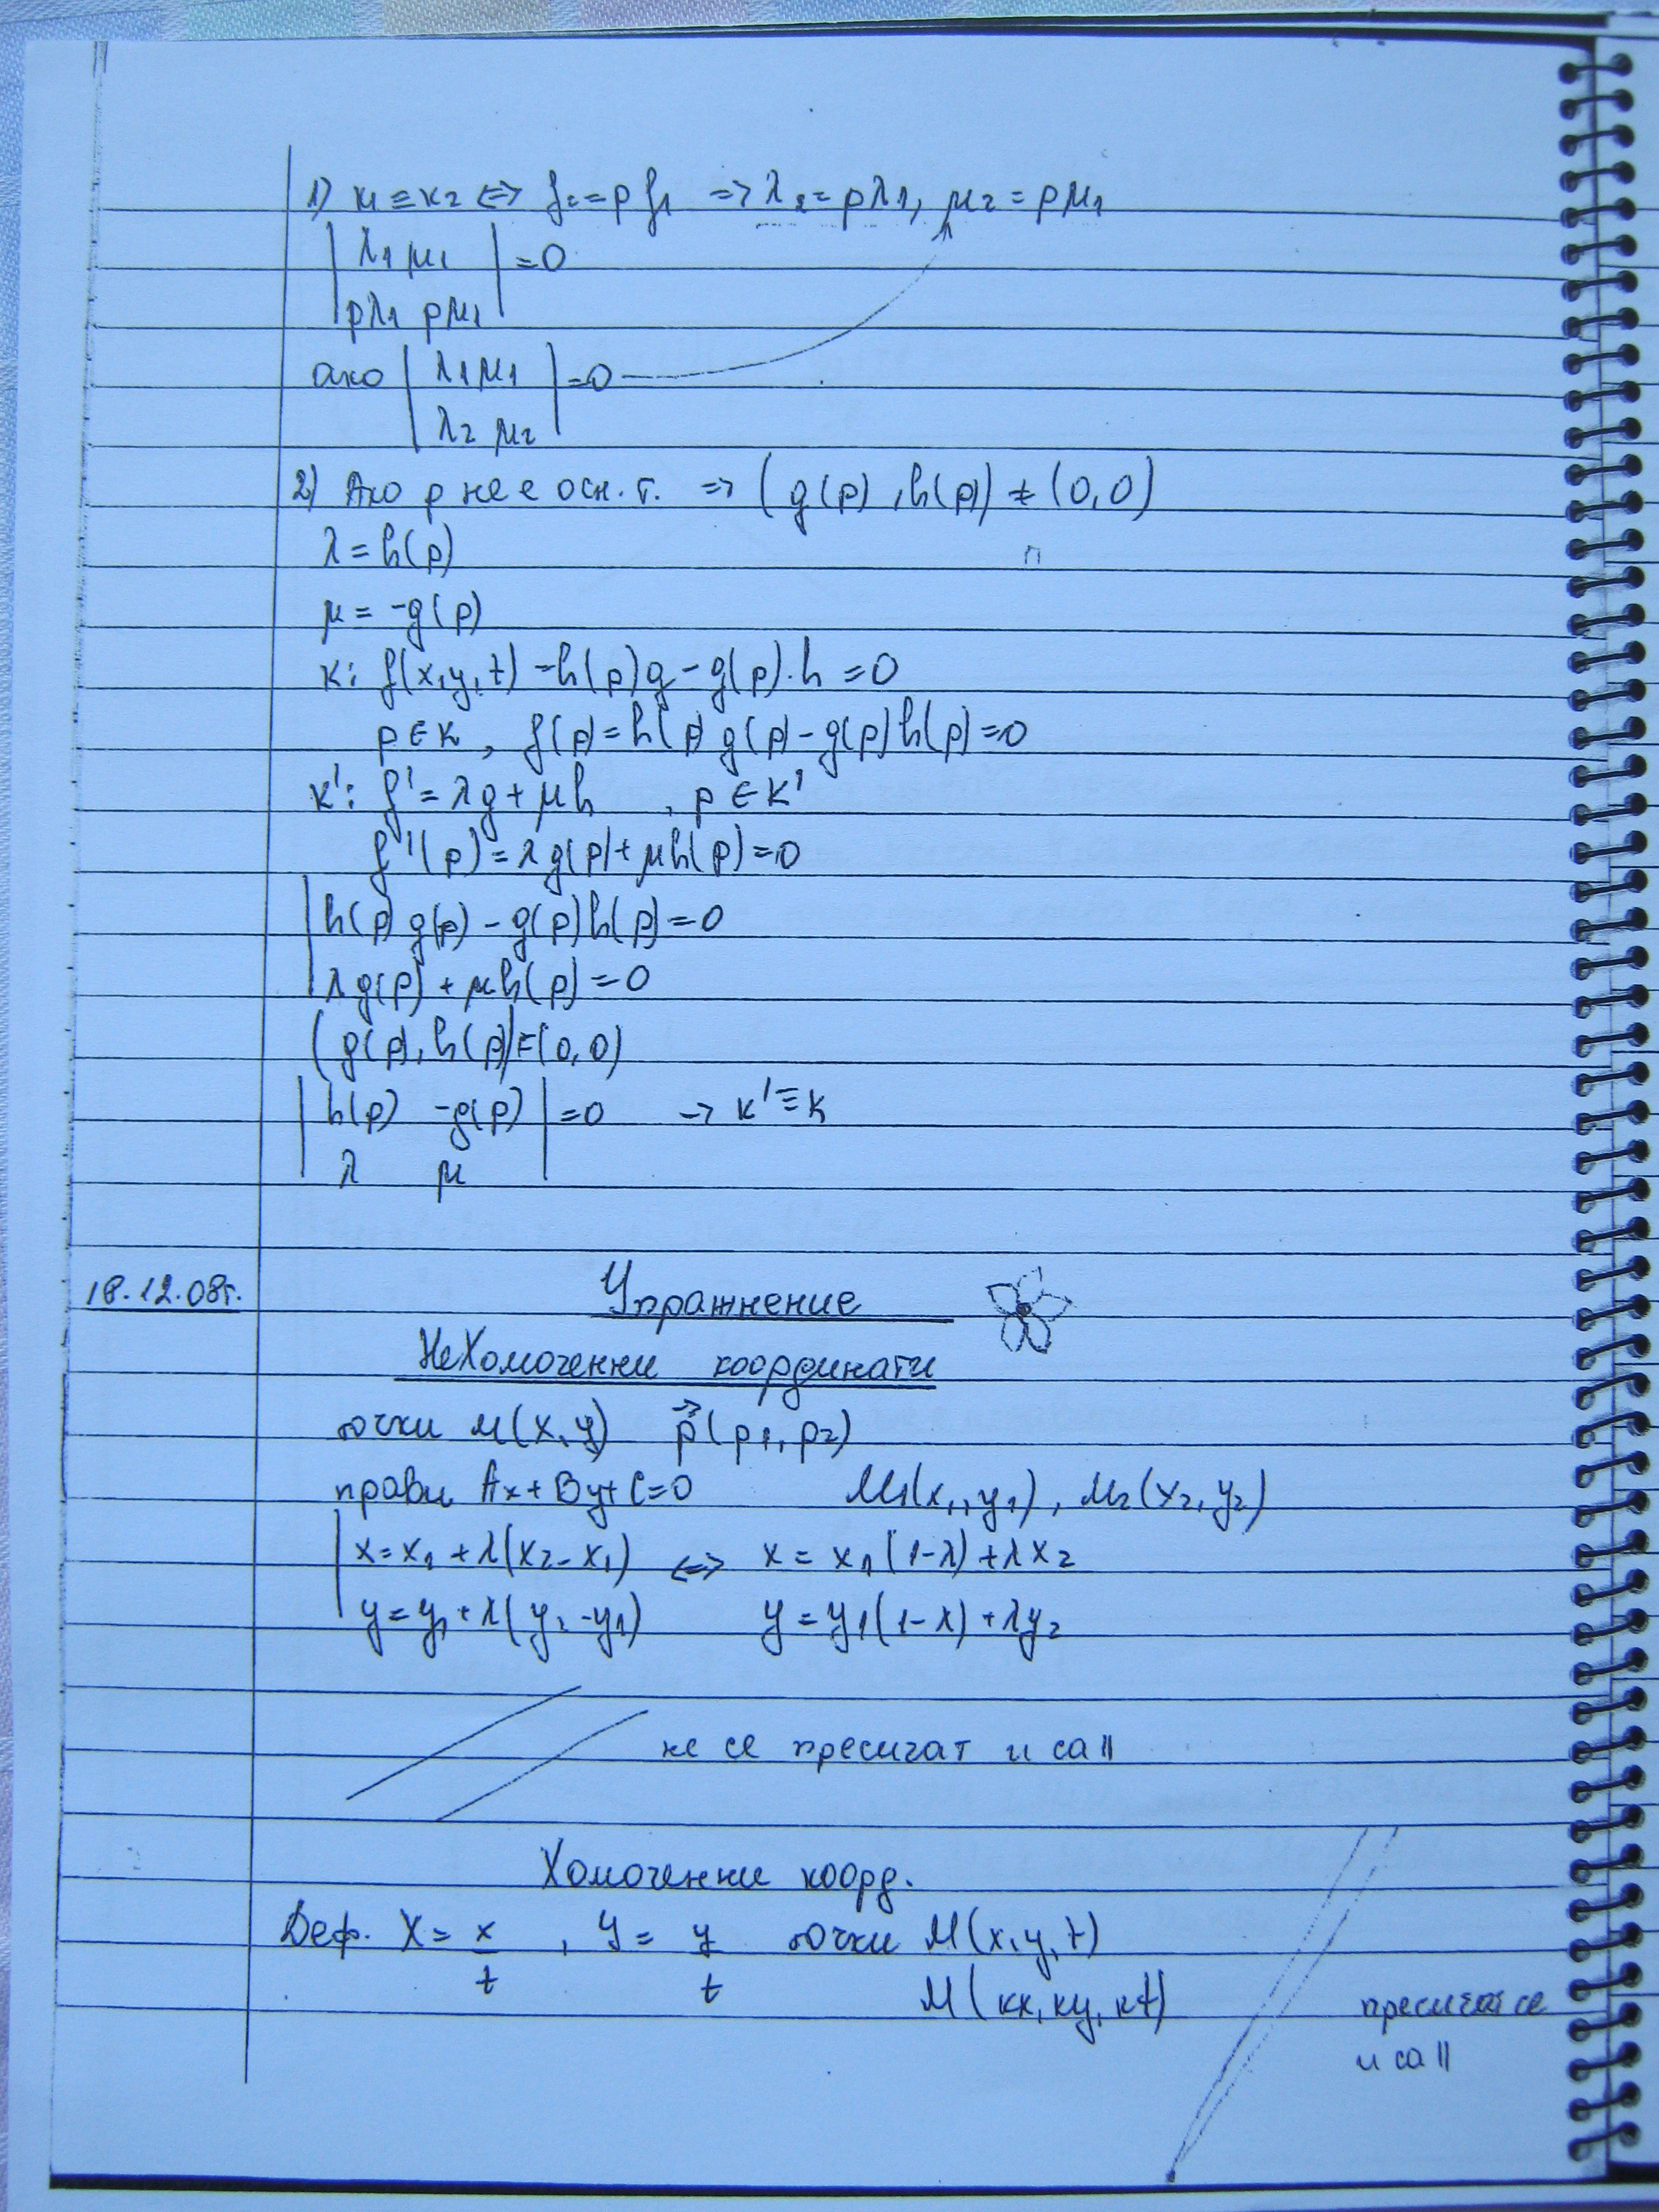 1) к1 ≡ к2 <=> f2 = ρ f1 => λ2 = ρλ1, μ2 = ρμ1
| λ1 μ1 | = 0
| ρλ1 ρμ1 |
ако | λ1 μ1 | = 0
| λ2 μ2 |
2) Ако p не е осн. т. => (g(p), h(p)) ≠ (0,0)
λ = h(p)
μ = -g(p)
к: f(x,y,t) = h(p)g - g(p).h = 0
p ∈ к, f(p) = h(p) g(p) - g(p) h(p) = 0
к': f' = λg + μh, p ∈ к'
f'(p) = λg(p) + μh(p) = 0
| h(p) g(p) - g(p) h(p) = 0
| λg(p) + μh(p) = 0
(g(p), h(p)) ≠ (0,0)
| h(p) -g(p) | = 0 → к' ≡ к
| λ μ |
18.12.08г. Упражнение
НеХомогенни координати
точки М(x,y) p→(p1, p2)
прави Ax+By+C=0 M1(x1, y1), M2(x2, y2)
| x = x1 + λ(x2 - x1) <=> x = x1(1-λ) + λx2
| y = y1 + λ(y2 - y1) y = y1(1-λ) + λy2
не се пресичат и са ||
Хомогенни коорд.
Деф. X = x/t, Y = y/t точки М(x,y,t)
М(кx, кy, кt)
пресичат се
и са ||